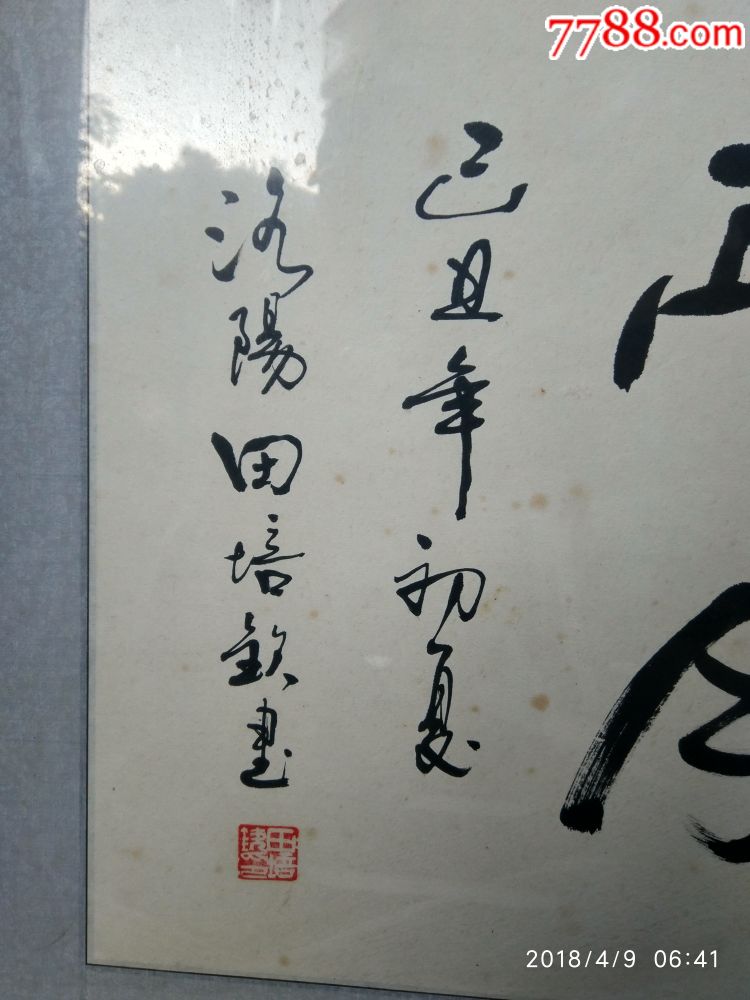 7788.com
己丑年初夏
洛陽田培欽書
2018/4/9 06:41